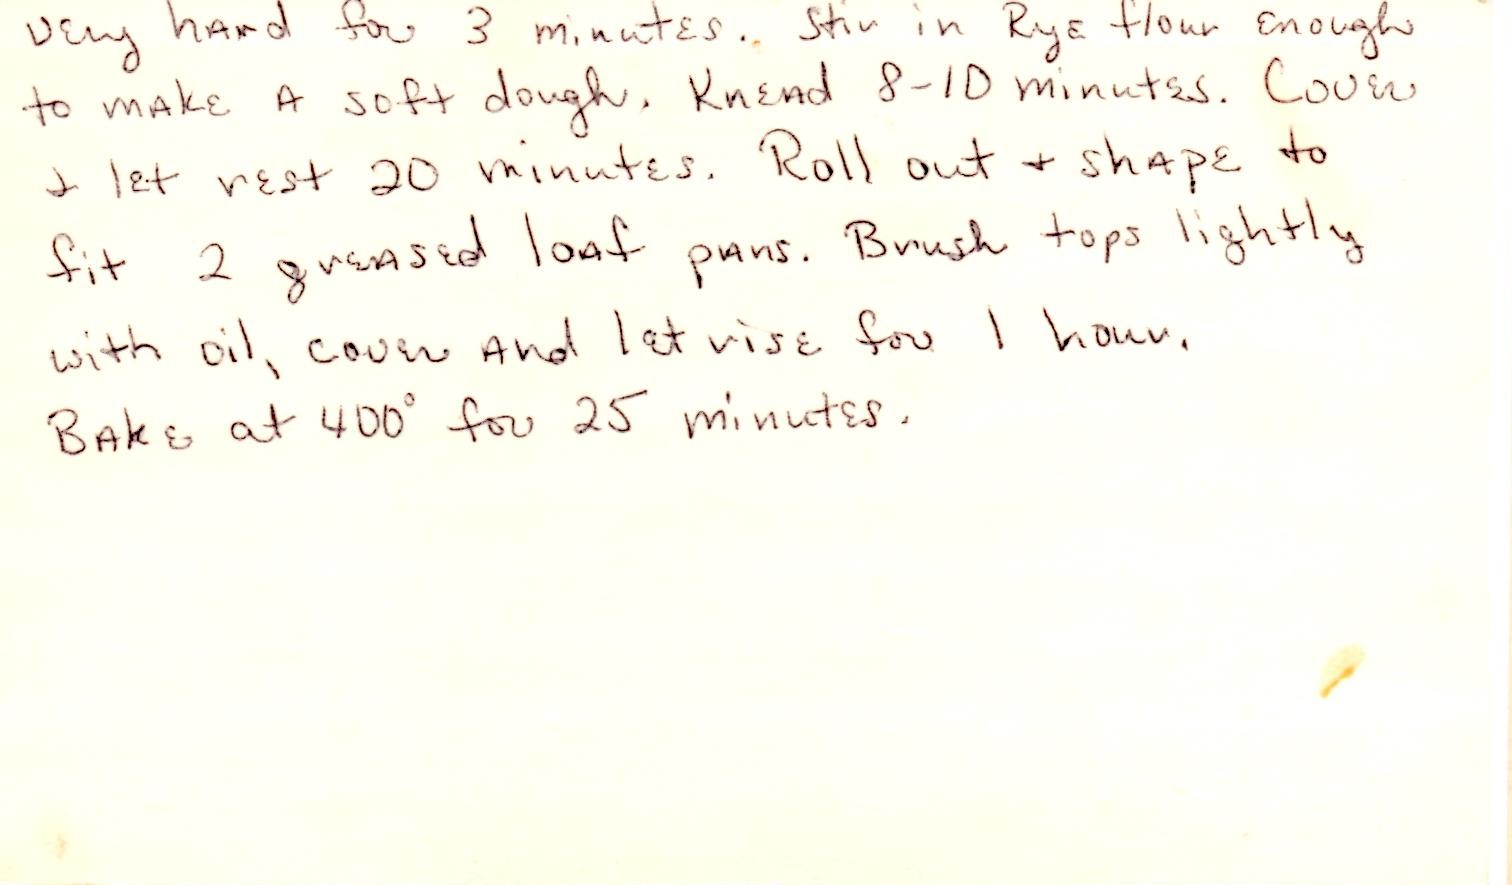 very hard for 3 minutes. Stir in Rye flour enough
to make A soft dough. Knead 8-10 minutes. Cover
+ let rest 20 minutes. Roll out + shape to
fit 2 greased loaf pans. Brush tops lightly
with oil, cover And let rise for 1 hour.
Bake at 400° for 25 minutes.